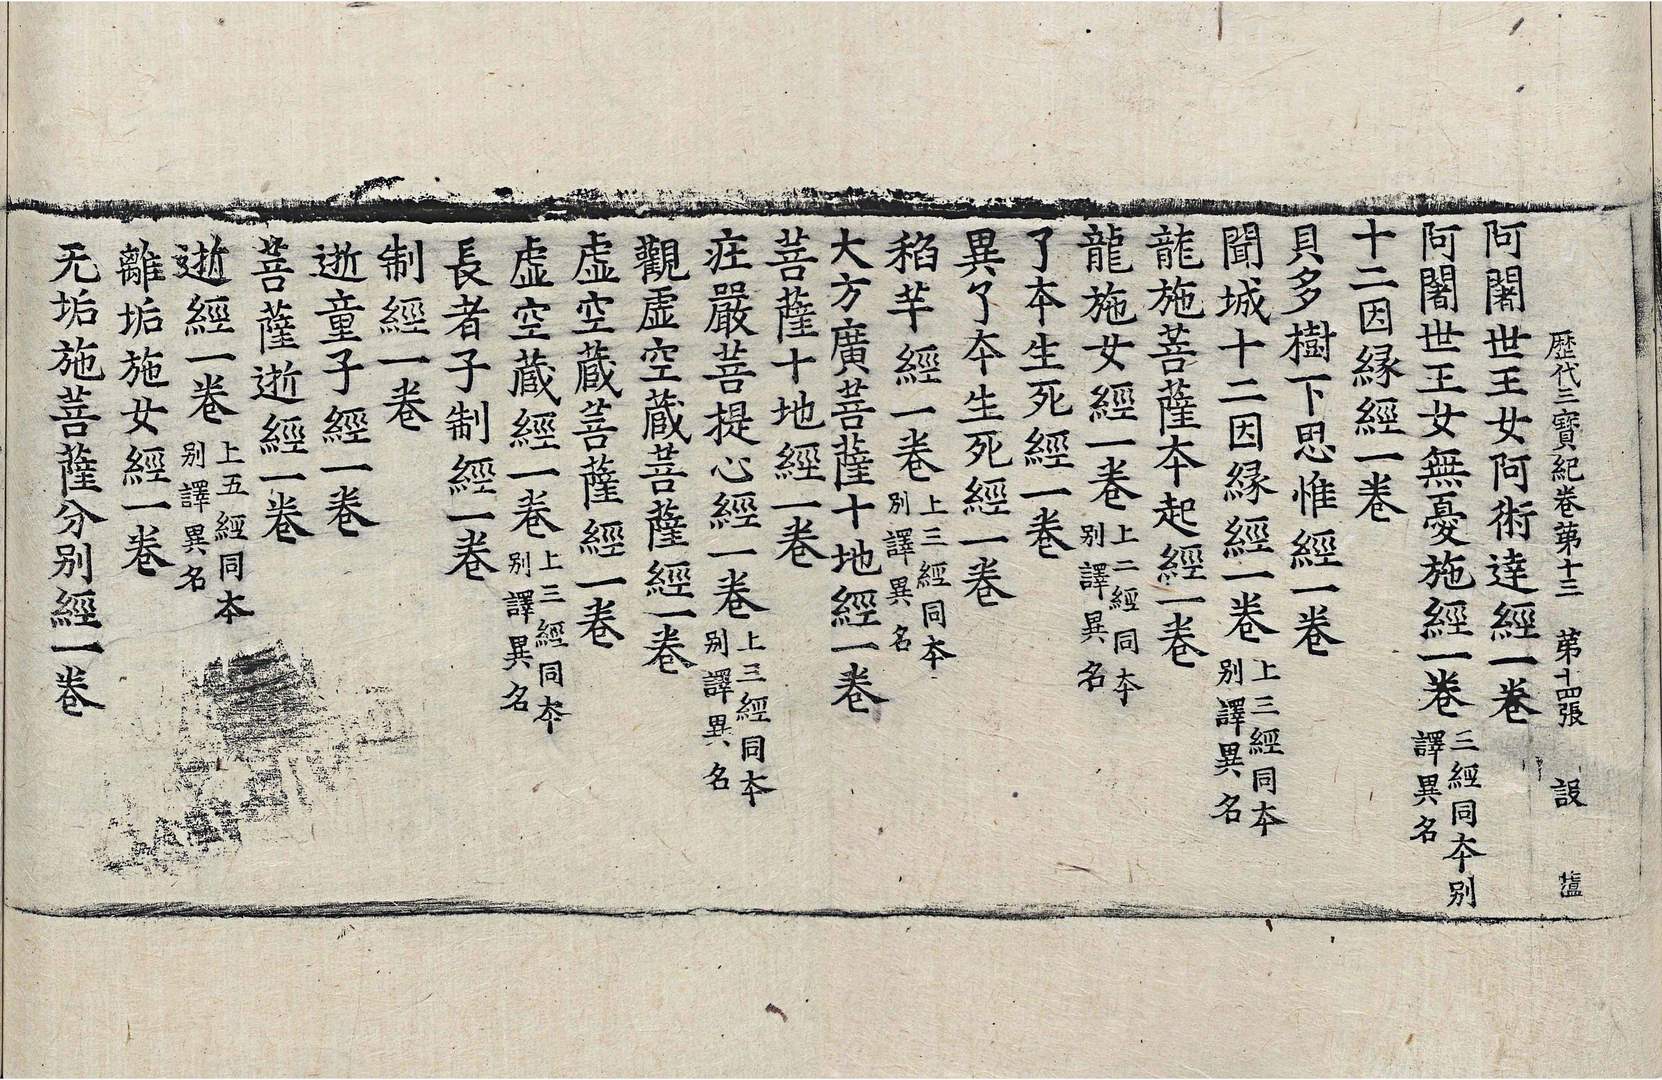 歷代三寶紀卷第十三 第十四張 設
阿闍世王女阿術達經一卷
阿闍世王女無憂施經一卷 三經同本別譯異名
十二因緣經一卷
貝多樹下思惟經一卷
聞城十二因緣經一卷 上三經同本別譯異名
龍施菩薩本起經一卷
龍施女經一卷 上二經同本別譯異名
了本生死經一卷
異了本生死經一卷
稻芉經一卷 上三經同本別譯異名
大方廣菩薩十地經一卷
菩薩十地經一卷
莊嚴菩提心經一卷 上三經同本別譯異名
觀虛空藏菩薩經一卷
虛空藏菩薩經一卷
虛空藏經一卷 上三經同本別譯異名
長者子制經一卷
制經一卷
逝童子經一卷
菩薩逝經一卷
逝經一卷 上五經同本別譯異名
離垢施女經一卷
无垢施菩薩分別經一卷